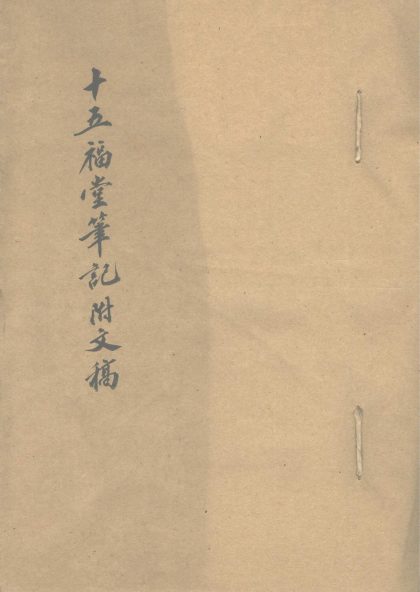 十五福堂筆記附文稿